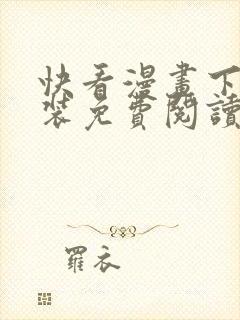 快看漫畫下
裝免費閱讀
羅衣